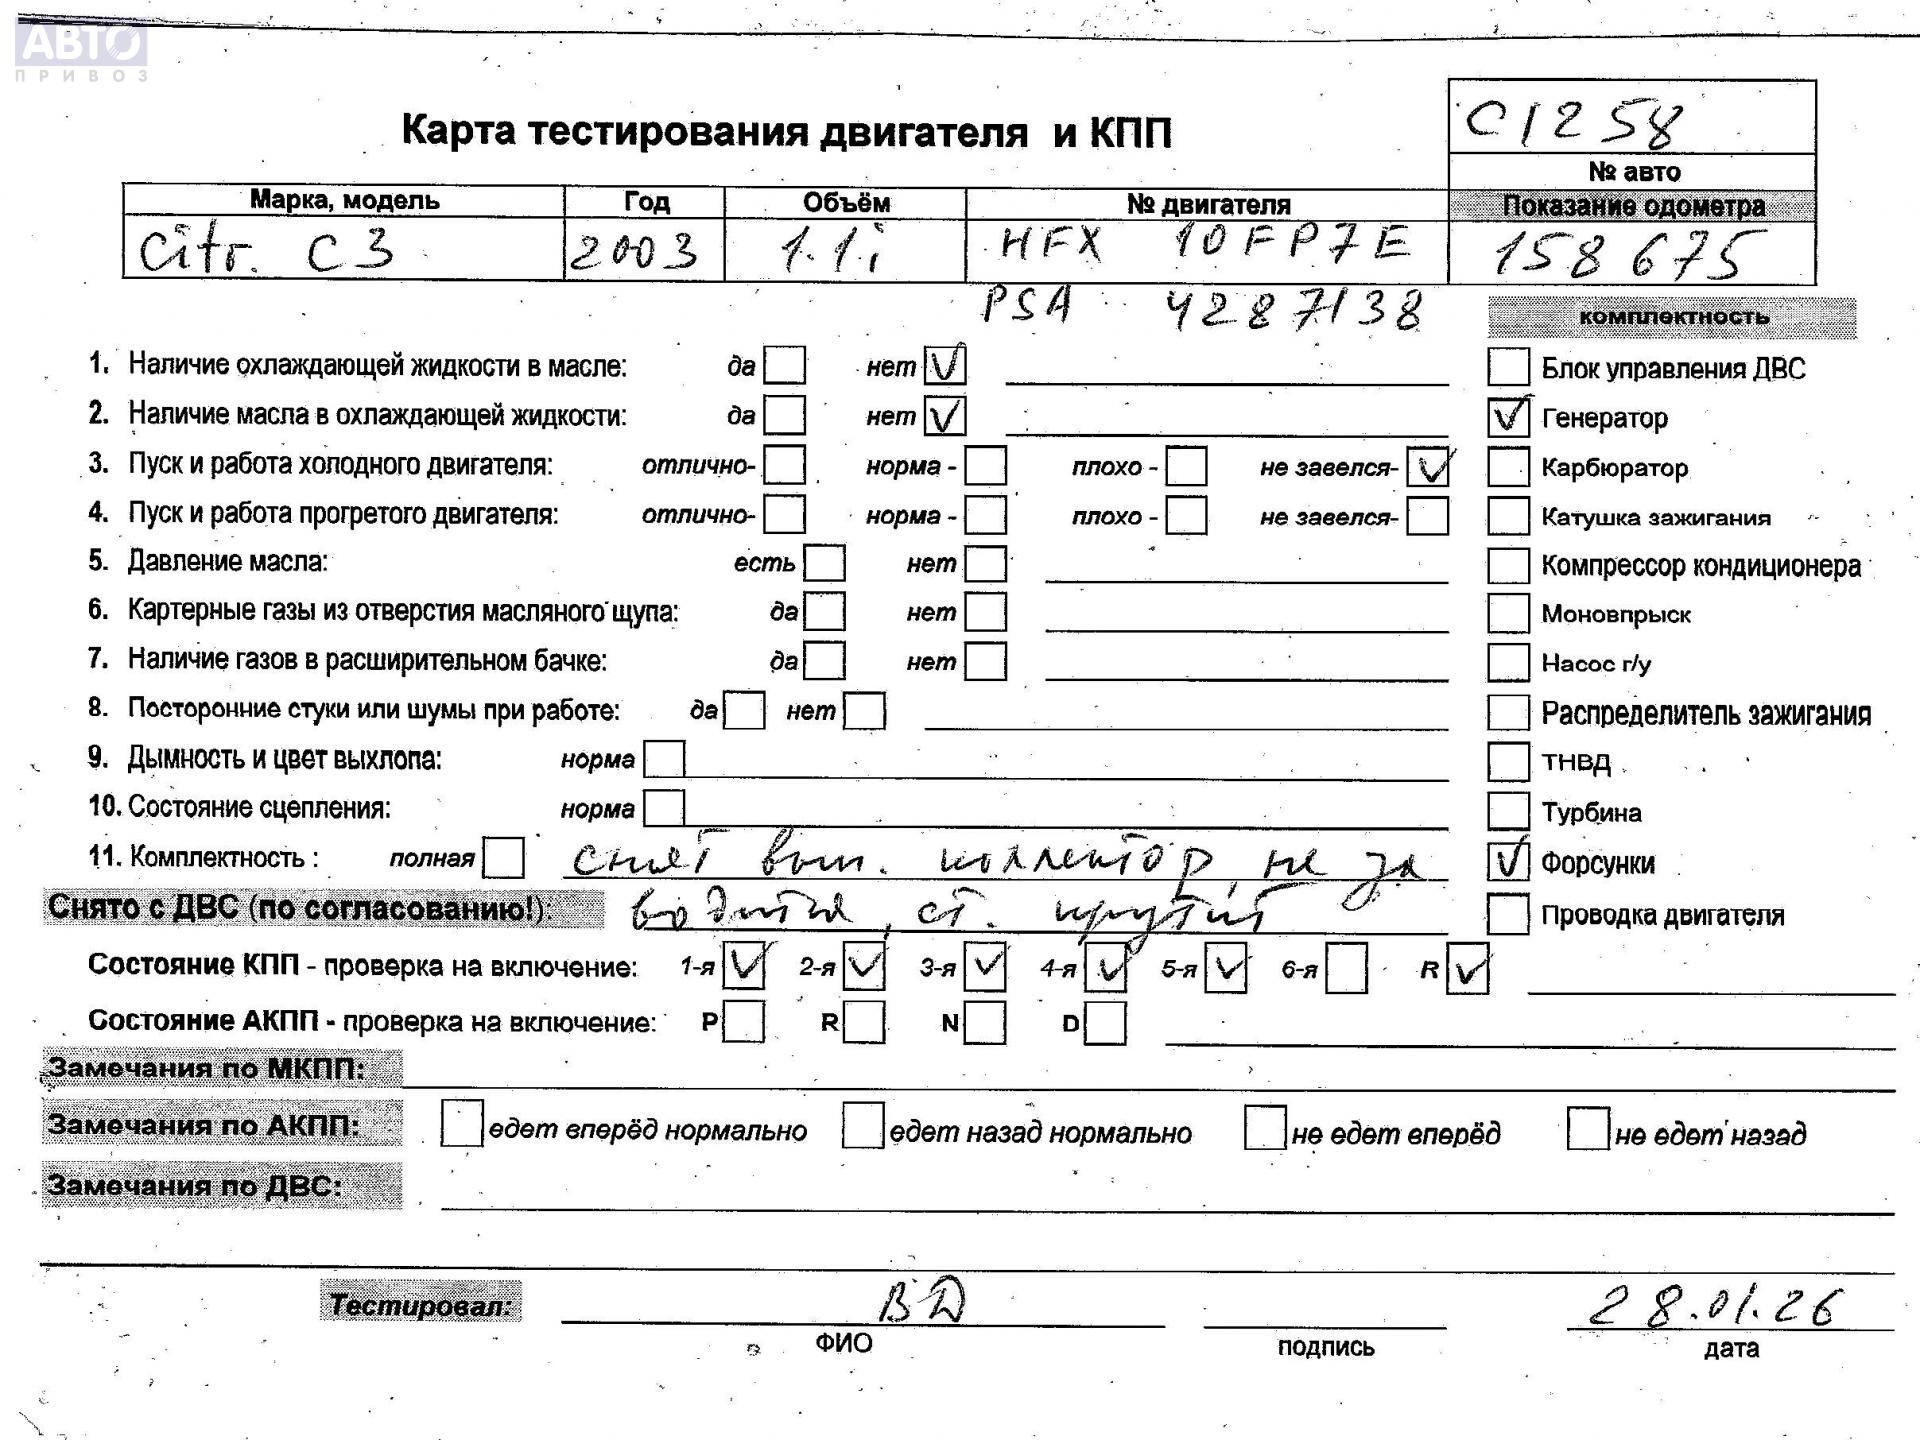 АВТО
ПРИВОЗ
C1258
Карта тестирования двигателя и КПП
№ авто
Марка, модель Год Объём № двигателя Показание одометра
Citr. C3 2003 1.1i HFX 10FP7E 158 675
PSA 4287138
комплектность
1. Наличие охлаждающей жидкости в масле: да нет V Блок управления ДВС
2. Наличие масла в охлаждающей жидкости: да нет V V Генератор
3. Пуск и работа холодного двигателя: отлично- норма - плохо - не завелся- V Карбюратор
4. Пуск и работа прогретого двигателя: отлично- норма - плохо - не завелся- Катушка зажигания
5. Давление масла: есть нет Компрессор кондиционера
6. Картерные газы из отверстия масляного щупа: да нет Моновпрыск
7. Наличие газов в расширительном бачке: да нет Насос г/у
8. Посторонние стуки или шумы при работе: да нет Распределитель зажигания
9. Дымность и цвет выхлопа: норма ТНВД
10. Состояние сцепления: норма Турбина
11. Комплектность : полная снят вып. коллектор, не за V Форсунки
Снято с ДВС (по согласованию!): водится, ст. крутит Проводка двигателя
Состояние КПП - проверка на включение: 1-я V 2-я V 3-я V 4-я V 5-я V 6-я R V
Состояние АКПП - проверка на включение: P R N D
Замечания по МКПП:
Замечания по АКПП: едет вперёд нормально едет назад нормально не едет вперёд не едет назад
Замечания по ДВС:
Тестировал: ВД 28.01.26
ФИО подпись дата